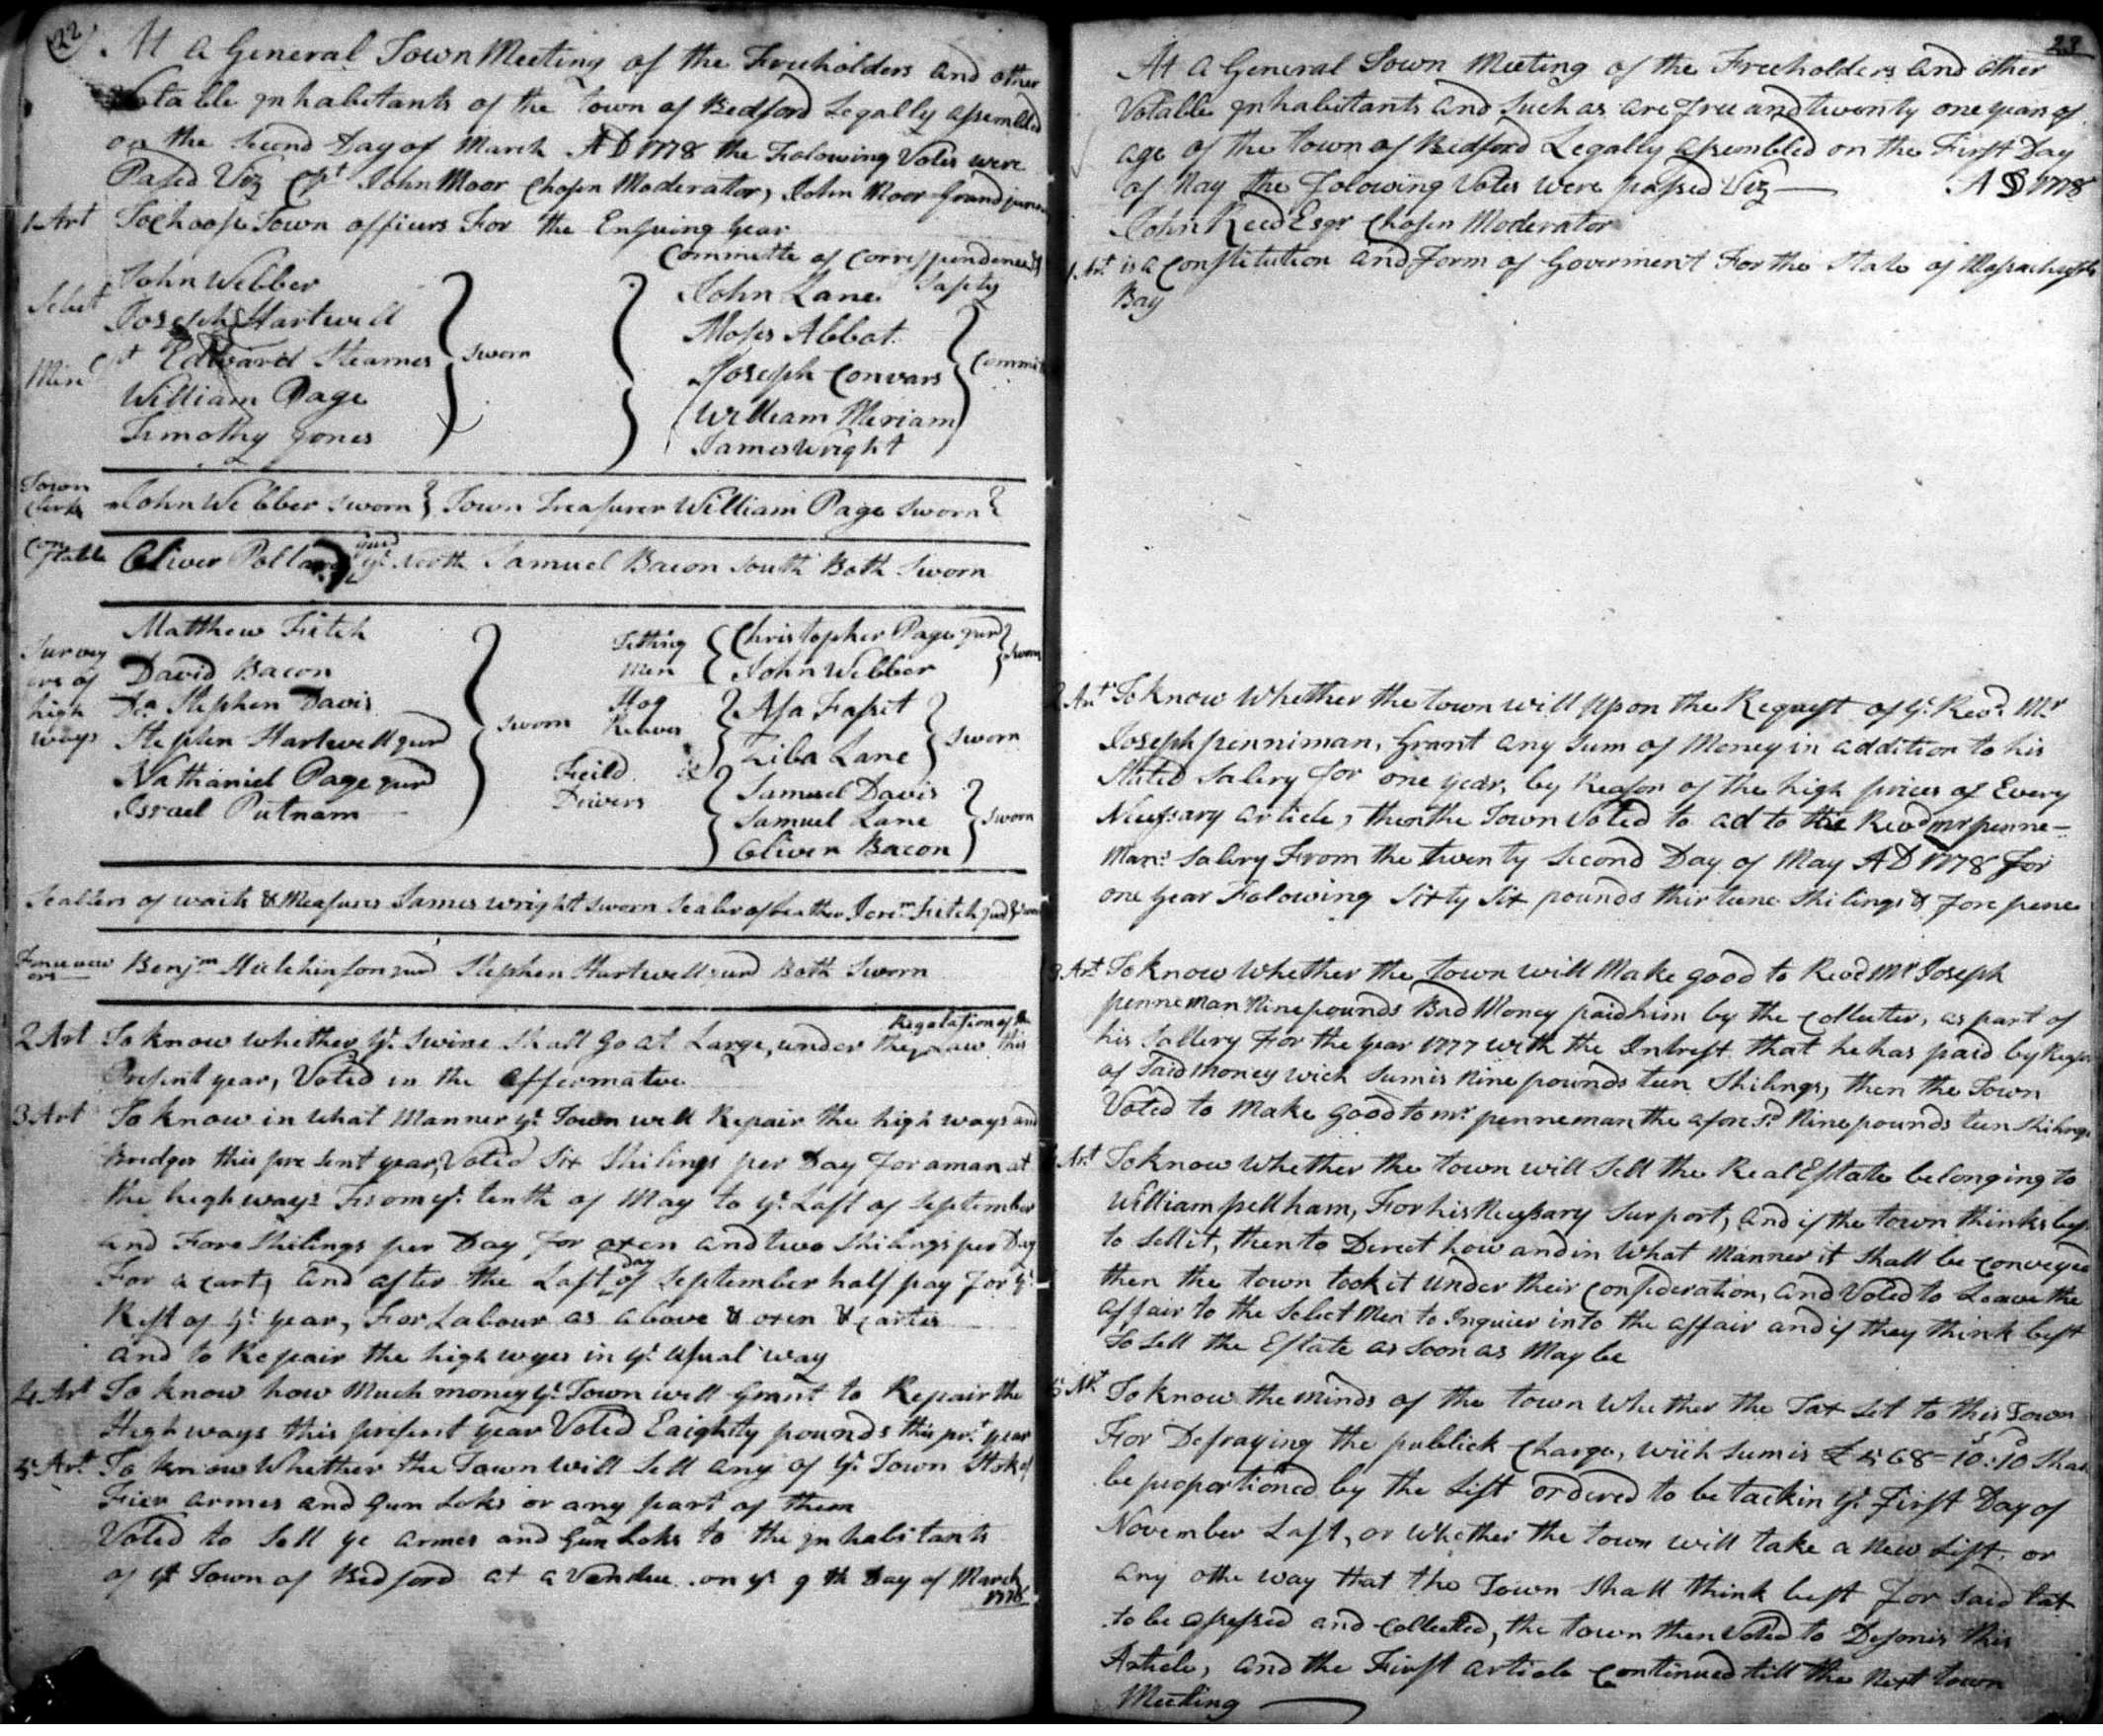 22
At a General Town Meeting of the Freeholders and other
Votable Inhabitants of the town of Bedford Legally assembled
on the Second Day of March AD 1778 the Folowing Votes were
Pased Viz Cpt John Moor Chosen Moderator, John Moor Grand
1 Art To choose Town officers For the Ensuing year
Select Men
John Webber
Joseph Hartwell
Edward Stearnes
William Page
Timothy Jones
sworn
Committe of Correspondence &
Safety
John Lane
Moses Abbot
Joseph Convars
William Meriam
James Wright
Town Clerk John Webber sworn Town Treasurer William Page Sworn
Constable Oliver Pollard Jund ye North Samuel Bacon South Both Sworn
Survey
ers of
high
ways
Matthew Fitch
David Bacon
Dea Stephen Davis
Stephen Hartwell jund
Nathaniel Page jund
Israel Putnam
sworn
Tithing
men
Christopher Page jund
John Webber
sworn
Hog
Reives
Asa Fasit
Ziba Lane
sworn
Feild
Drivers
Samuel Davis
Samuel Lane
Oliver Bacon
sworn
Sealers of waits & Measures James wright sworn Sealer of Leather Jerem Fitch jund
Benjm Hutchinson jund Stephen Hartwell jund Both Sworn
2 Art To know whether ye Swine Shall go at Large, under the Regulation of the Law this
Present year, Voted in the affermative
3 Art To know in what Manner ye Town will Repair the high ways and
Bridges this present year, Voted Six Shilings per Day for a man at
the high ways From ye tenth of May to ye Last of September
and Fore Shilings per Day for oxen and two Shilings per Day
For a cart, and after the Last day of September half pay for ye
Rest of ye year, For Labour as above & oxen & cartes
and to Repair the high wyes in ye usual way
4 Art To know how Much money ye Town will Grant to Repair the
High ways this present year Voted Eaighty pounds this prt year
5 Art To know Whether the Town will Sell any of ye Town Stok of
Fier armes and Gun Loks or any part of them
Voted to Sell ye armes and Gun Loks to the Inhabitants
of ye Town of Bedford at a Vendue on ye 9th Day of March
1778
23
At a General Town Meeting of the Freeholders and other
Votable Inhabitants and Such as are free and twenty one years of
age of the town of Bedford Legally assembled on the First Day
of May the folowing Votes were passed Viz AD 1778
John Reed Esqr Chosen Moderator
1 Art is a Constitution and Form of Goverment For the State of Massachusetts
Bay
2 Art To know Whether the town will upon the Request of ye Revd Mr
Joseph penniman, Grant any Sum of Money in addition to his
Stated Salery for one year, by Reason of the high prices of Every
Nesesary article, then the Town Voted to ad to the Revd mr penne-
mans Salery From the twenty Second Day of May AD 1778 for
one year Folowing Sixty Six pounds thirteene Shilings & fore pene
3 Art To know Whether the town will Make good to Revd Mr Joseph
penneman Nine pounds Bad Money paid him by the collecter, as part of
his Sallery For the year 1777 with the Intrest that he has paid by Reason
of Said money wich Sum is Nine pounds teen Shilings, then the Town
Voted to Make good to mr penneman the afore sd Nine pounds teen Shilings
Art To know Whether the town will Sell the Real Estate belonging to
William pellham, For his Necessary Surport, and if the town thinks best
to Sell it, then to Direct how and in What Manner it Shall be conveyed
then the town took it under their Consideration, and Voted to Leave the
affair to the Select Men to Inquier into the affair and if they think best
To Sell the Estate as Soon as May be
5 Art To know the minds of the town Whether the Tax Set to this Town
For Defraying the publick Charge, wich Sum is £ 568=10s:10d Shall
be proportioned by the List ordered to be tackin ye First Day of
November Last, or Whether the town will take a New List, or
any othe way that the Town Shall think best for Said tax
to be assessed and collected, the town then Voted to Desmis this
Article, and the First article Continued till the Next town
Meeting